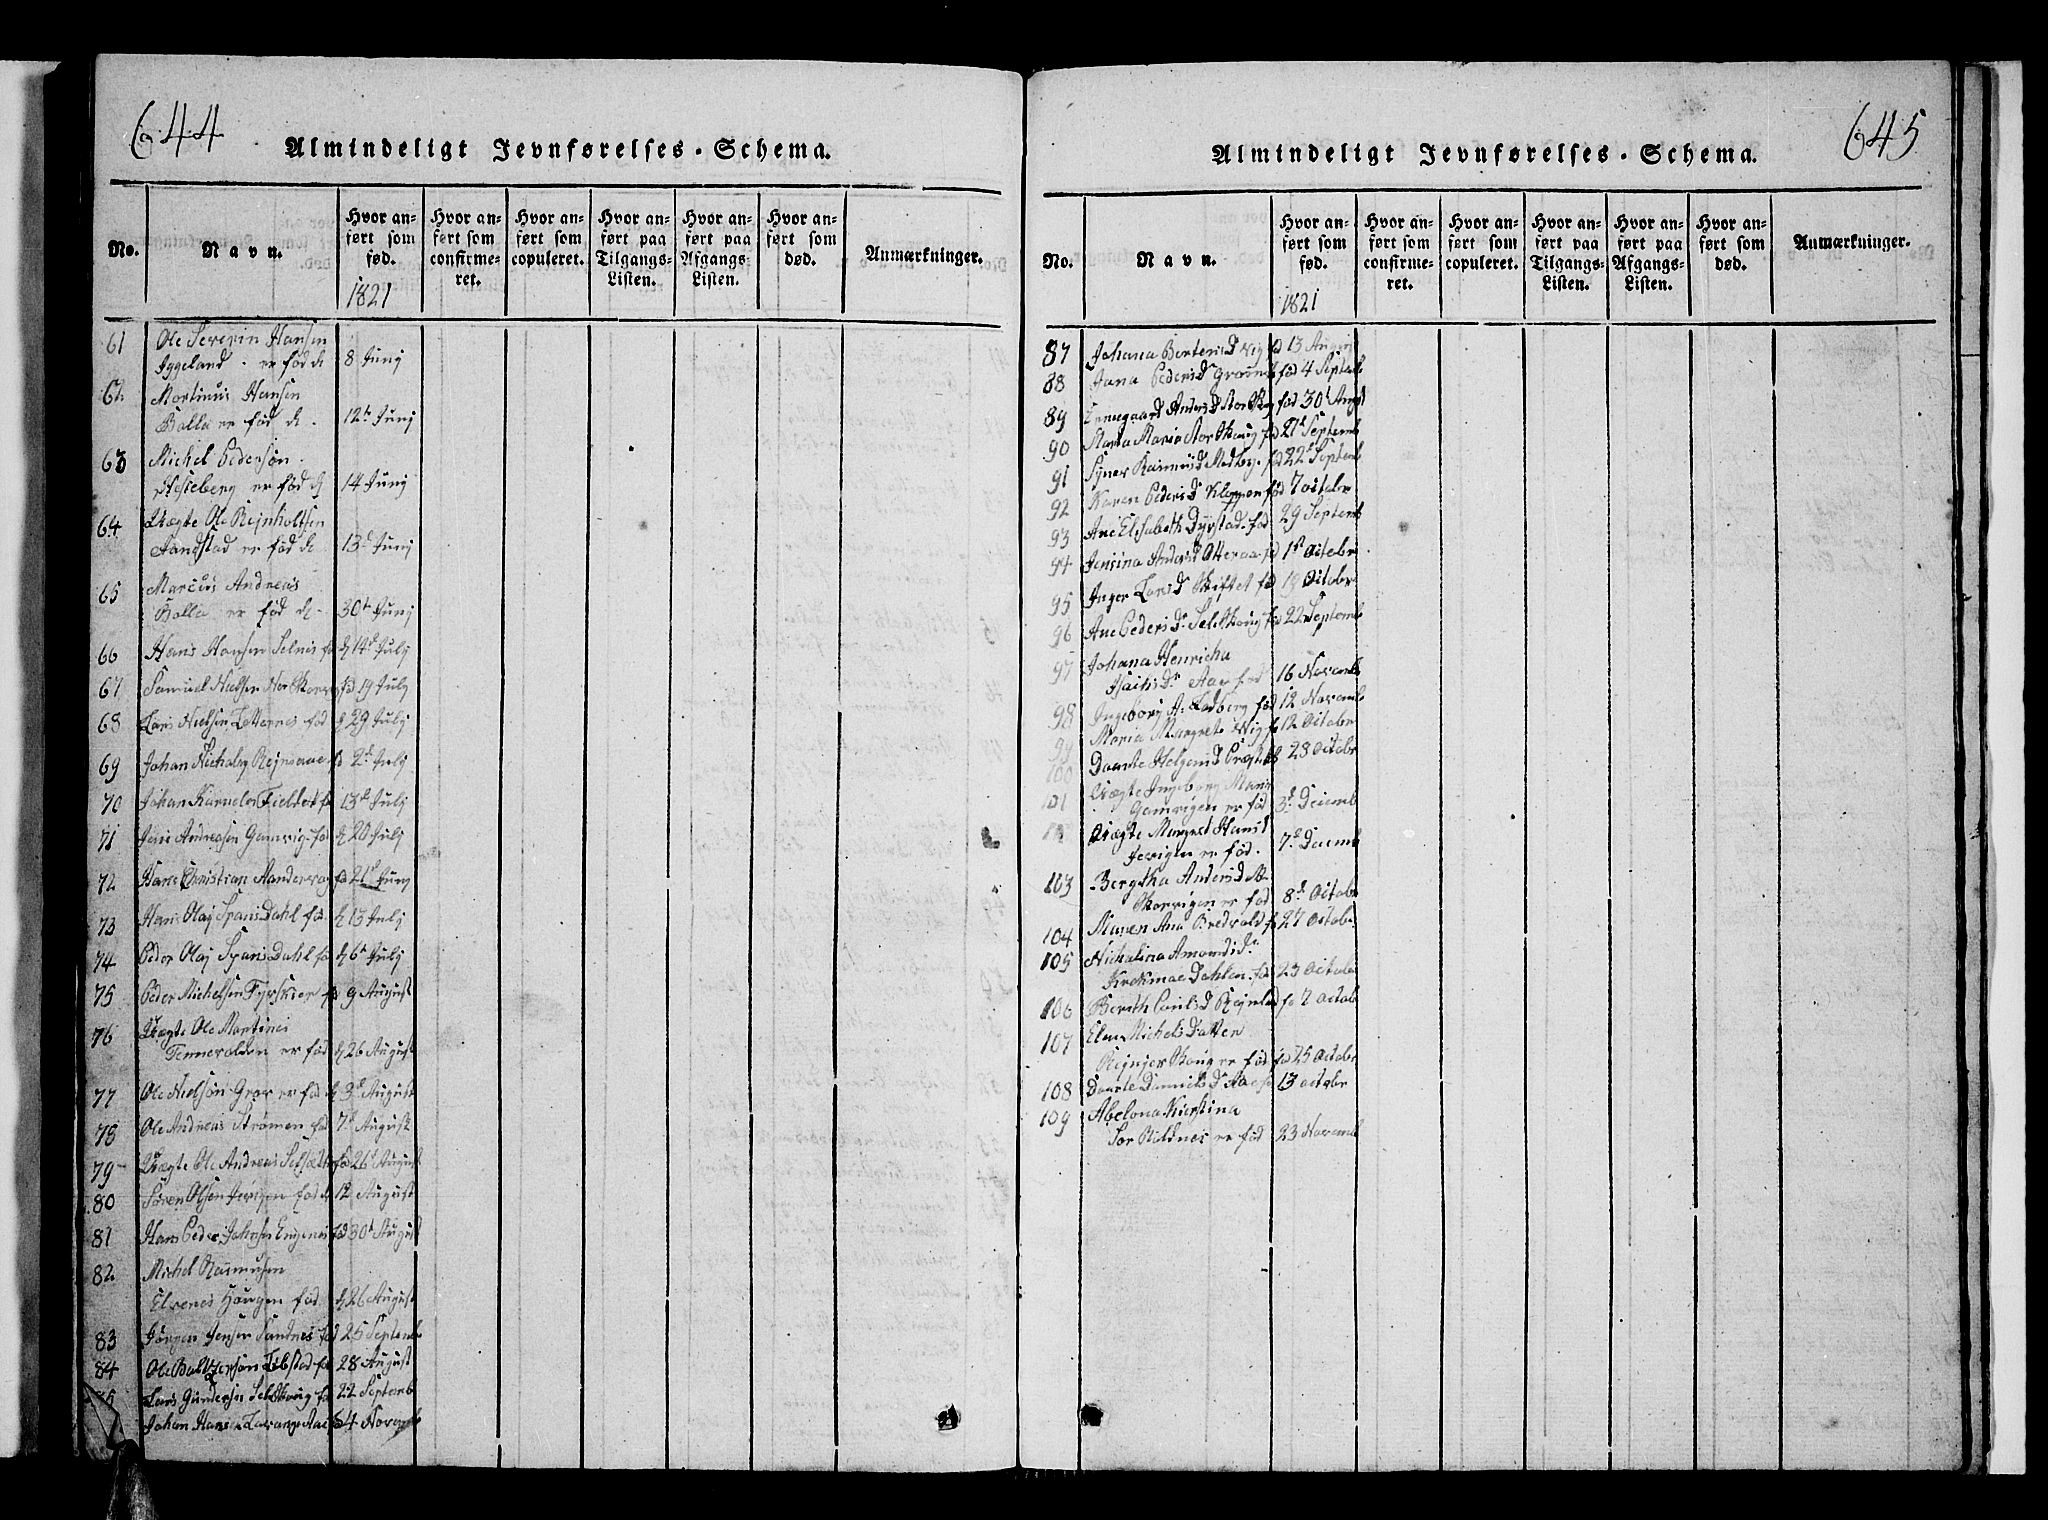 644
Almindeligt Jevnførelses-Schema.
No.
Navn.
Hvor an-
ført som
fød.
Hvor an-
ført som
confirme-
ret.
Hvor an-
ført som
copuleret.
Hvor an-
ført paa
Tilgangs-
Listen.
Hvor an-
ført paa
Afgangs-
Listen.
Hvor an-
ført som
død.
Anmærkninger.
1821
61 Ole Severin Hansen
Iggeland - er fød d 8 Junj
62 Mortinus Hansen
Bolla er fød d. 12te Junj
63 Michel Pedersøn
Hesteberg er fød d 14 Junj
64 Uægte Ole Rejnholtsen
Aandstad er fød d 13d Junj
65 Marcus Andreas
Bolla er fød d. 30te Junj
66 Hans Hansen Selnes fø d 14d Julj
67 Samuel Nielsen fød 19 Julj
68 Lars Nielsen fød d 29 Julj
69 Johan Nicholay 2d Julj
70 Johan Kornelius 13d Julj
71 Jens Andreasen Gamvig fød d 20 Julj
72 Hans Christian fø 21d Junj
73 Hans Olaj Spansdahl fød d 13 Julj
74 Peder Olaj Spansdahl fø d 6te Julj
75 Peder Michelsen fø 9 August
76 Uægte Ole Martines
Tennevolden er fød d 26 August
77 Ole Nielsøn Grov er fød d 3d August
78 Ole Andreas Strømen fød 7d August
79 Uægte Ole Andreas fød 26d August
80 Søren Olsen fød d 12 August
81 Hans Peder Johnsen Engenes fød 30d August
82 Michel Rasmusen
Elvenes Haugen fød d 26 August
83 Jørgen Jensen Sandnes fød 25 Septemb
84 Ole Baltzersøn Libstad fø 28 August
Lars Gundersen Selskoug fø 22 Septemb
Johan Hans 4 Novemb
645
Almindeligt Jevnførelses-Schema.
No.
Navn.
Hvor an-
ført som
fød.
Hvor an-
ført som
confirme-
ret.
Hvor an-
ført som
copuleret.
Hvor an-
ført paa
Tilgangs-
Listen.
Hvor an-
ført paa
Afgangs-
Listen.
Hvor an-
ført som
død.
Anmærkninger.
1821
87 Johana Vig fød 13 August
88 Jana Pedersd fød 4 Septemb
89 Andersd fød 30d Augst
90 Marta Maria Storskoug fø 21d Septemb
91 Rasmusd Medby fød 22d Septemb
92 Karen Pedersd Kloppen fød 7 octobr
93 Ane Elisabeth Dyrstad fød 29 Septemb
94 Jensina Andersd Otteraa fød 1st Octobr
95 Inger Larsd Skiftet fød 19 Octobr
96 Ane Pedersdr Selskoug fød 22 Septemb
97 Johana Henricha
Isachsdr Aae fød 16 Novemb
98 Ingeborg fød 12 Novemb
99 Maria Margrete Vig fø 12 Octobr
100 Daarte Helgesd 28 Octobr
101 Uægte Ingeborg Maria
Gamvigen er fød 3d Decemb
Uægte Margret Hansd
er fød. 7d Decemb
103 Bergtha Andersd
er fød 8d Octob
104 Maren Ana Bredvold fø 27 Octob
105 Nicholina Amondsdr
Krokmoe Dahlen fød 23 Octobr
106 Berith Paulsd fø 7 Octobr
107 Elen Michels Datter
er fød fød 25 Octobr
108 Daarte Danielsd Aae fø 13 octobr
109 Abelona Kirstina
Sør Rildnes er fød 23 Novemb